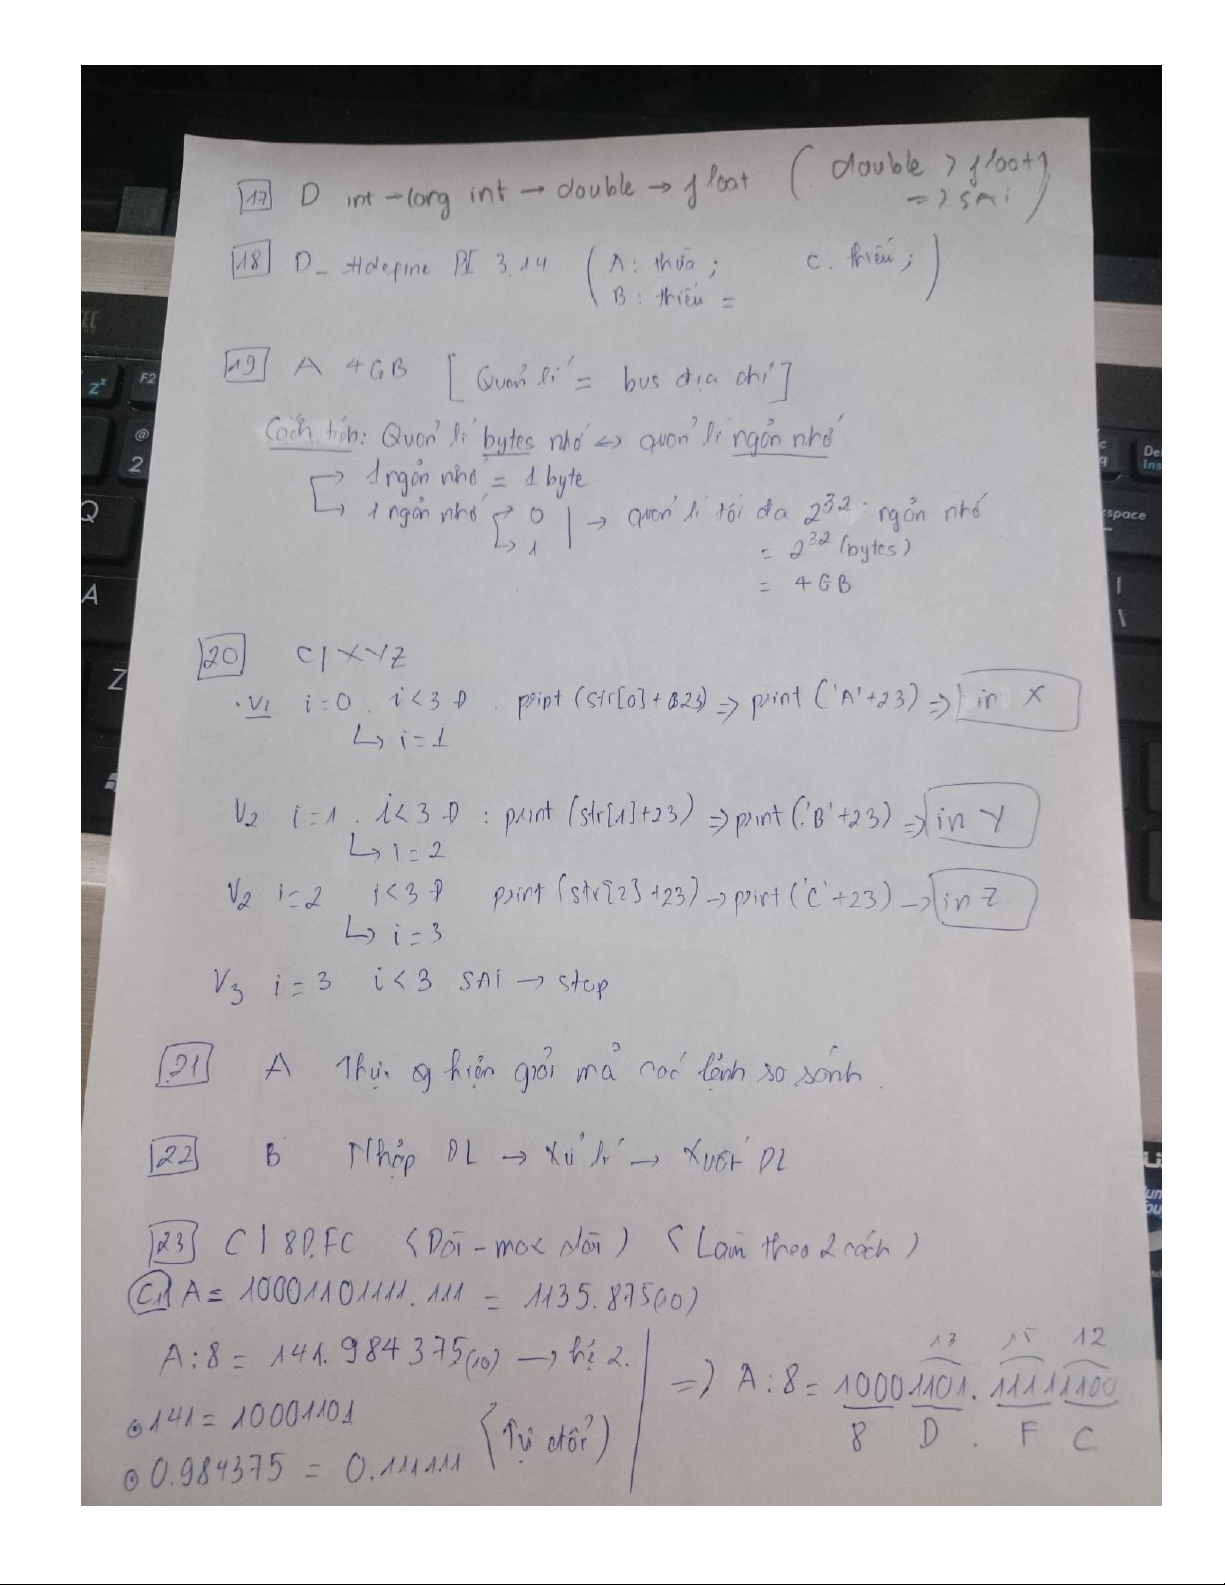 17 D int → long int → double → float ( double > float
=> SAi )
18 D_ #define PI 3.14 ( A: thừa ; C. thiếu ; )
B: thiếu =
19 A 4GB [ Quản lí = bus địa chỉ ]
Cách tính: Quản lí bytes nhớ ↔ quản lí ngăn nhớ
→ 1 ngăn nhớ = 1 byte
→ 1 ngăn nhớ → 0 | → quản lí tối đa 2^32 ngăn nhớ
→ 1 = 2^32 (bytes)
= 4GB
20 C| XYZ
V1 i=0 . i<3 Đ . print (str[0] + 23) => print ('A'+23) => in X
↳ i=1
V2 i=1 . i<3 Đ : print (str[1]+23) => print ('B'+23) => in Y
↳ i=2
V2 i=2 i<3 Đ print (str[2]+23) → print ('C'+23) → in Z
↳ i=3
V3 i=3 i<3 SAI → stop
21 A Thực hiện giải mã các lệnh so sánh.
22 B Nhập DL → Xử lí → Xuất DL
23 C | 8D.FC (Dài - max dài) (Làm theo 2 cách)
C1 A = 10001101111.111 = 1135.875(10)
A:8 = 141.984375(10) → hệ 2.
141 = 10001101
0.984375 = 0.111111 (Tự đổi)
13 15 12
=> A:8 = 10001101.11111100
8 D . F C
F2
@
2
Q
A
Z